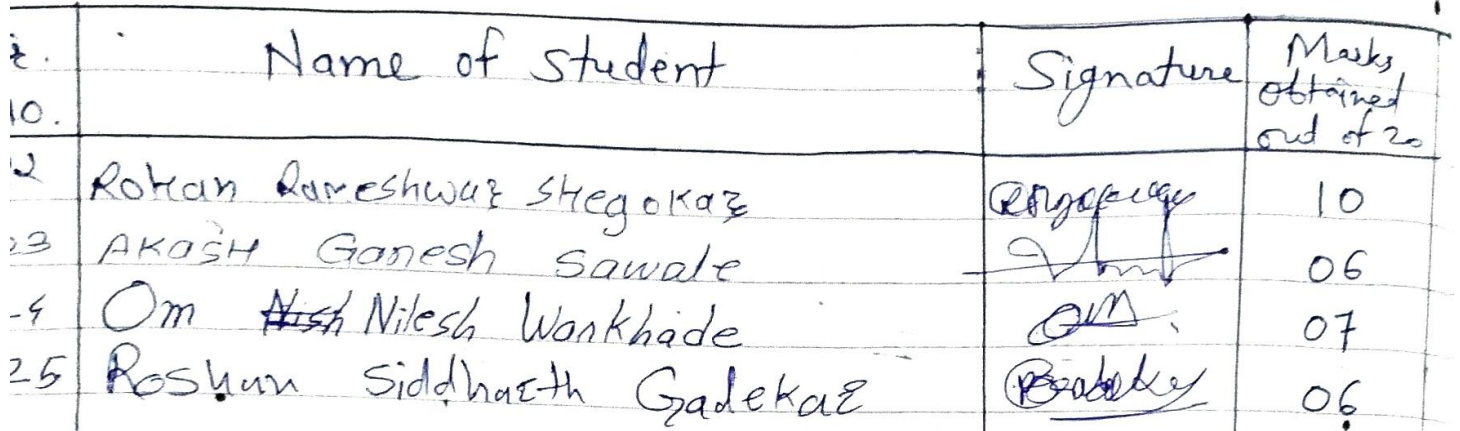 Name of Student Signature Marks obtained out of 20
Rohan Rameshwar Shegokar 10
23 Akash Ganesh Sawale 06
Om Nilesh Wankhade Om. 07
25 Roshan Siddharth Gadekar 06